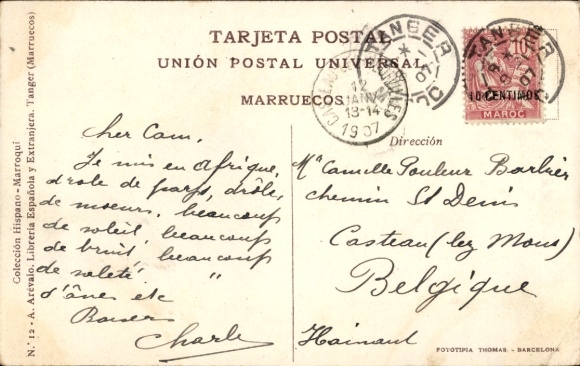 TARJETA POSTAL
UNIÓN POSTAL UNIVERSAL
MARRUECOS
Dirección
TANGER
9
07
TANGER
07
12
JANV
13-14
1907
10
10 CENTIMOS
MAROC
Cher Cam.
Je mis en Afrique,
drole de pays, drôle,
de moeurs, beaucoup
de soleil, beaucoup
de bruit, beaucoup
de saleté "
d'ânes etc
Charle
Camille Pouleur Barbier
chemin St Denis
Casteau (lez Mons)
Belgique
Hainaut
Colección Hispano-Marroquí
N.º 12 - A. Arévalo. Librería Española y Extranjera. Tanger (Marruecos)
FOTOTIPIA THOMAS - BARCELONA